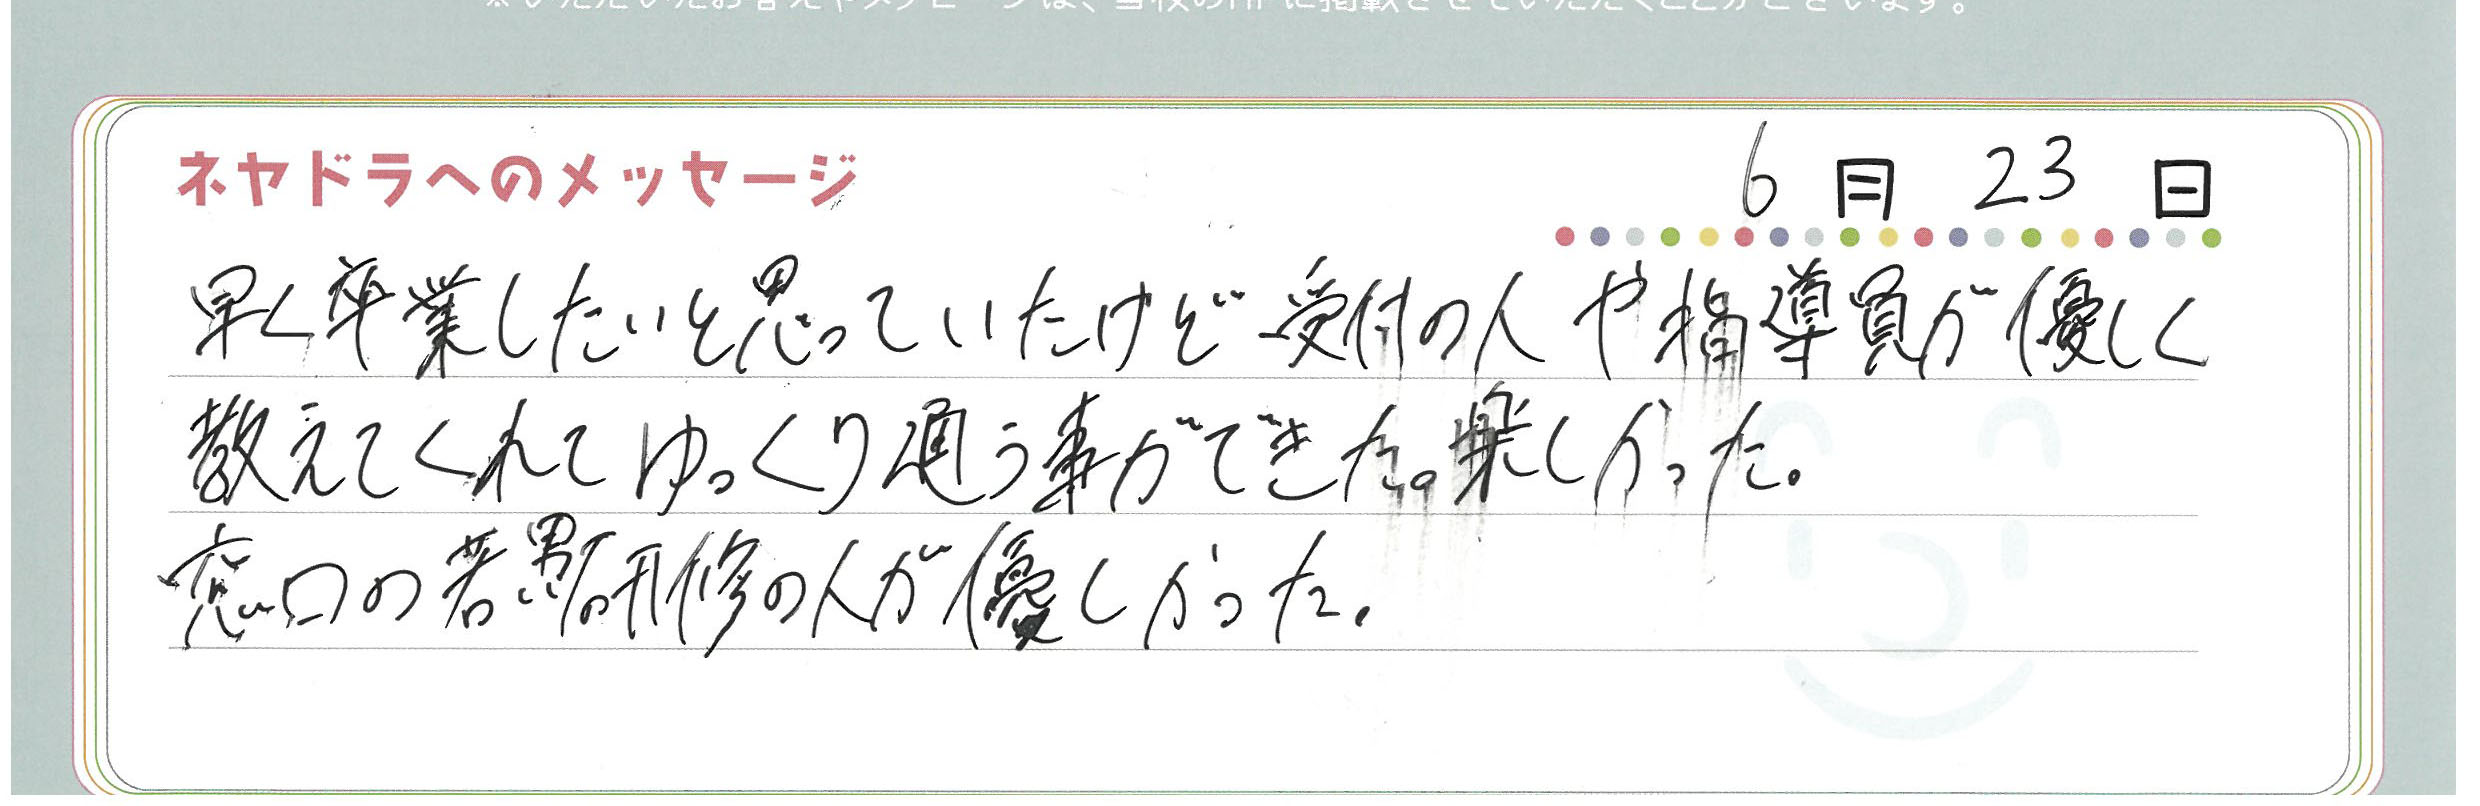 ※いただいたお答えやメッセージは、当校のHPに掲載させていただくことがございます。
ネヤドラへのメッセージ
6月23日
早く卒業したいと思っていたけど受付の人や指導員が優しく
教えてくれてゆっくり通う事ができた。楽しかった。
窓口の若い男の研修の人が優しかった。